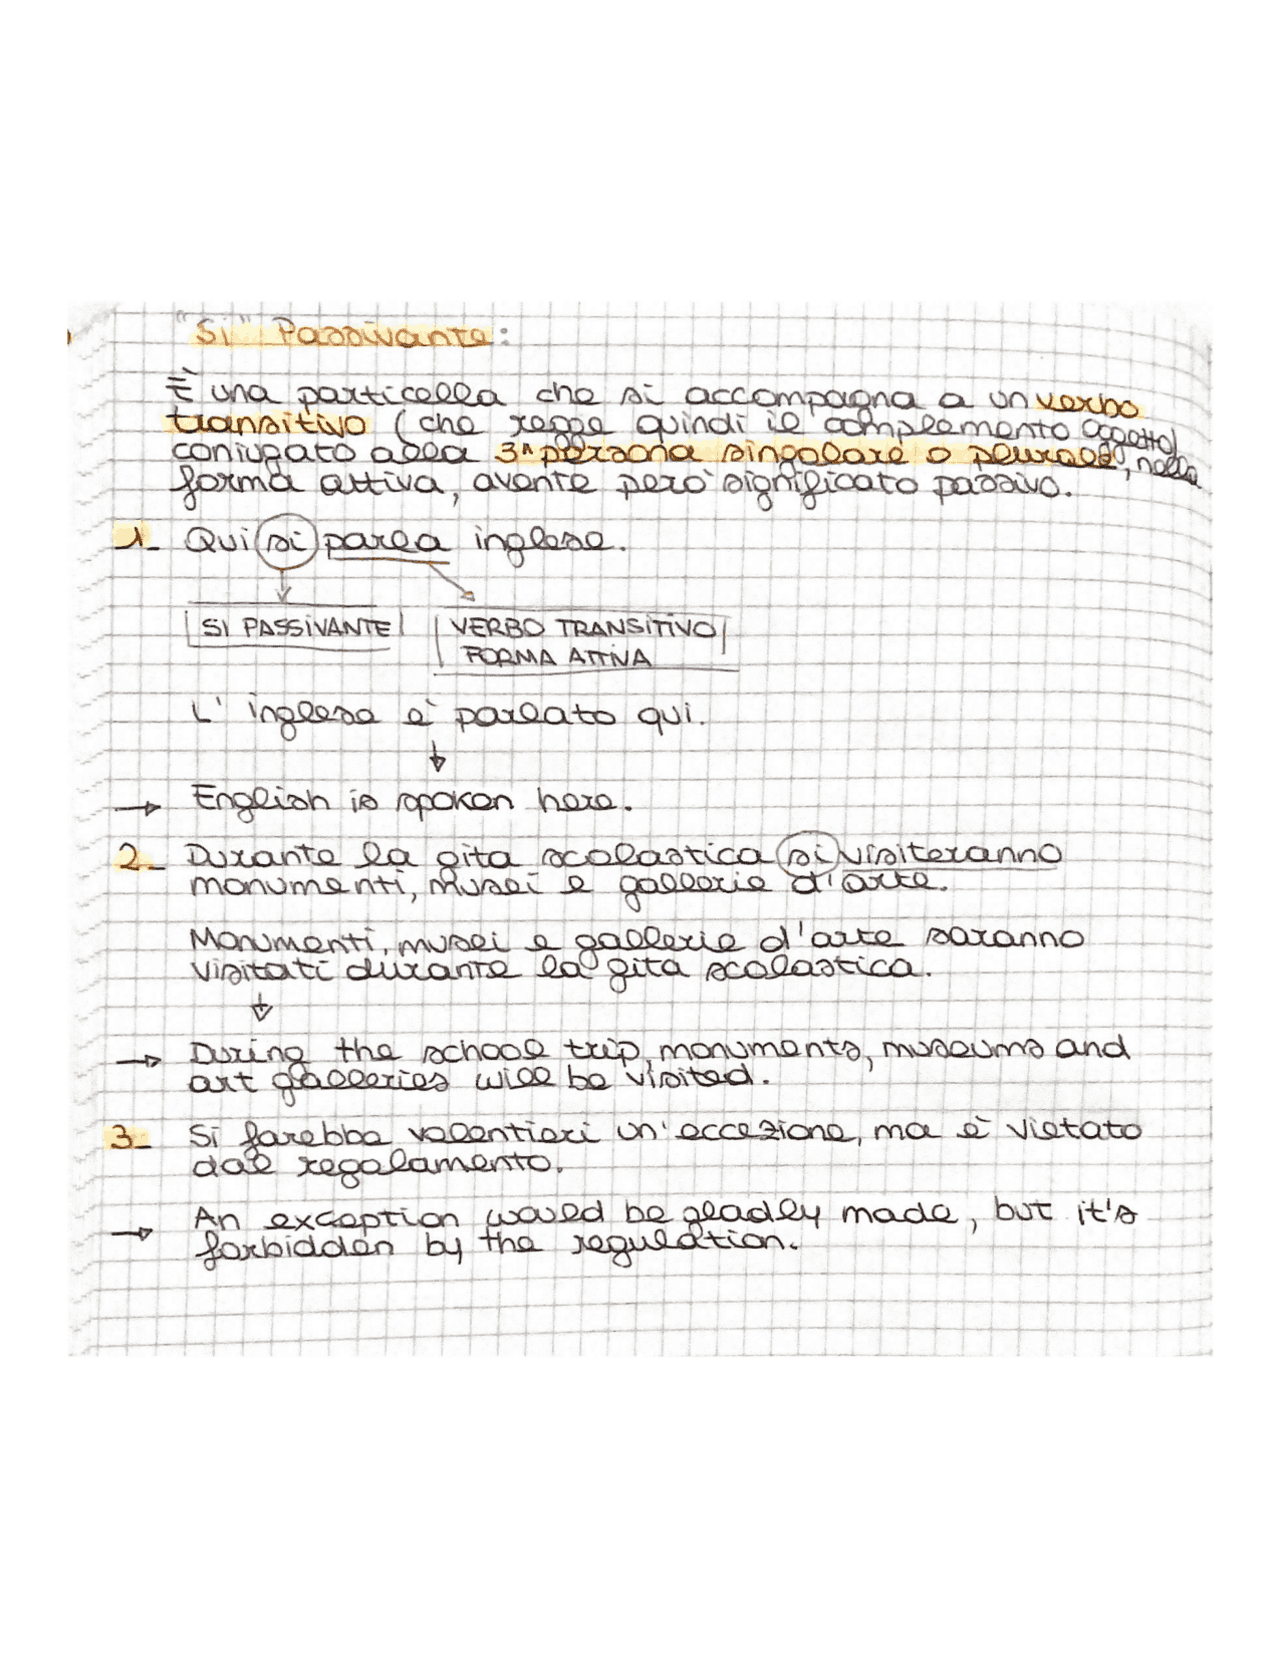 "Si" Passivante:
È una particella che si accompagna a un verbo
transitivo (che regge quindi il complemento oggetto)
coniugato alla 3ª persona singolare o plurale, nella
forma attiva, avente però significato passivo.
1- Qui si parla inglese.
SI PASSIVANTE VERBO TRANSITIVO
FORMA ATTIVA
L' inglese è parlato qui.
→ English is spoken here.
2- Durante la gita scolastica si visiteranno
monumenti, musei e gallerie d'arte.
Monumenti, musei e gallerie d'arte saranno
visitati durante la gita scolastica.
→ During the school trip, monuments, museums and
art galleries will be visited.
3- Si farebbe volentieri un'eccezione, ma è vietato
dal regolamento.
→ An exception would be gladly made, but it's
forbidden by the regulation.